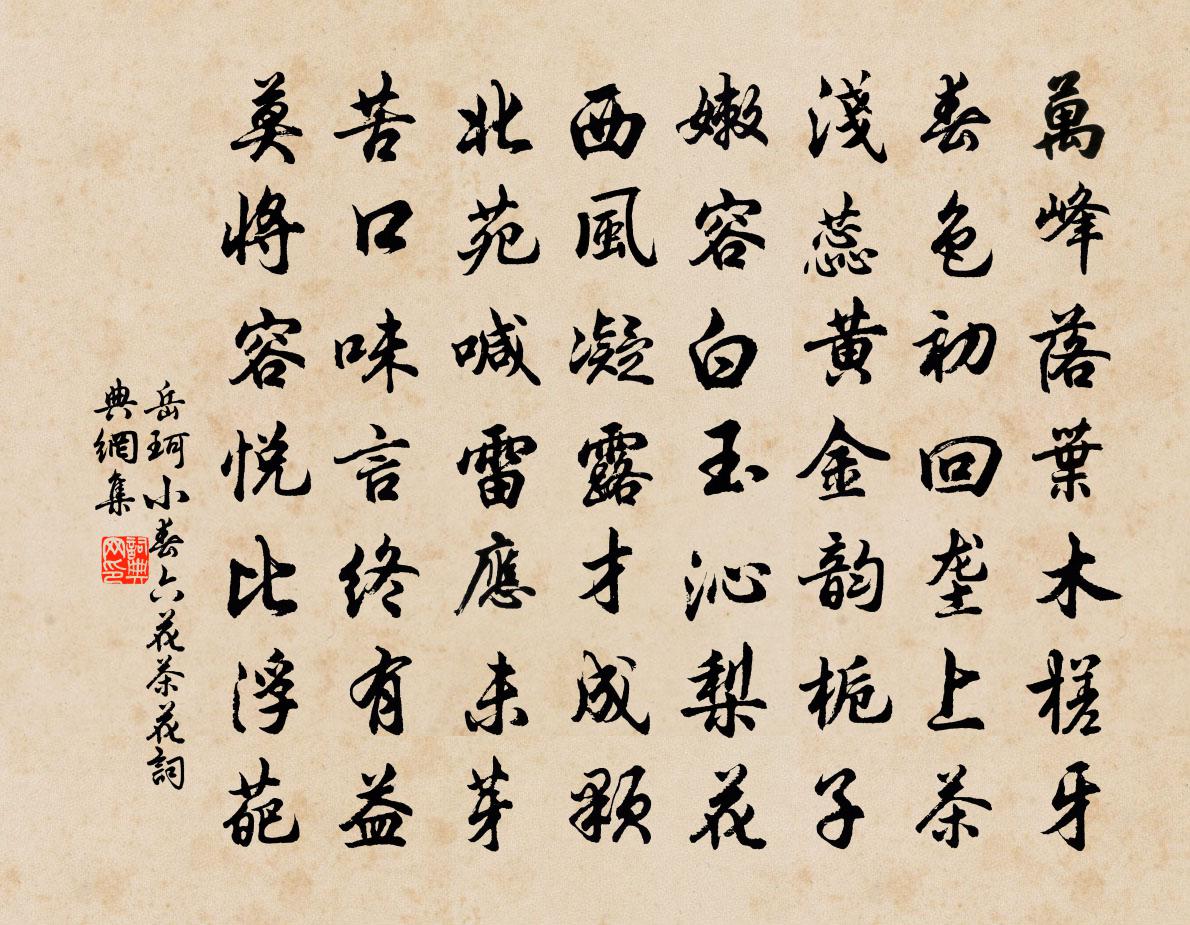 萬峰落葉木槎牙
春色初回垄上茶
淺蕊黄金韵栀子
嫩容白玉沁梨花
西風凝露才成顆
北苑喊雷應未芽
苦口味言终有益
莫將容悦比浮葩
岳珂小春六花茶花詞
典網集
詞典網印